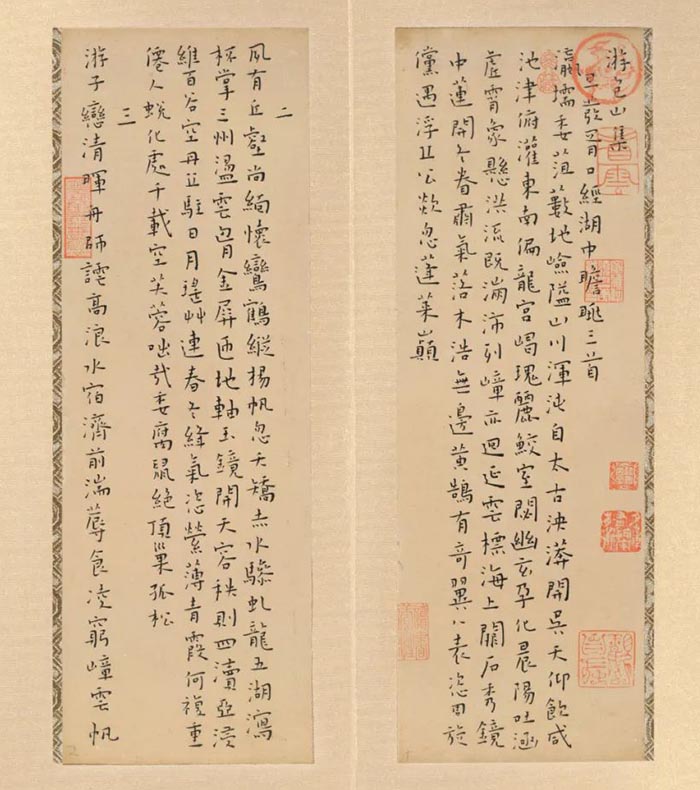 游包山集
早發胥口經湖中瞻眺三首
瀛壖委菹藪地嶮隘山川渾沌自太古泱漭開吳天仰飲咸
池津俯灌東南偏龍宮崛瑰麗鮫室閟幽玄孕化晨陽吐涵
虛霄象懸洪流既滿沛列嶂亦迴延雲標海上闕石秀鏡
中蓮開冬眷肅氣落木浩無邊黃鵠有奇翼八表恣回旋
儻遇浮丘公欻忽蓬萊巔
二
夙有丘壑尚緬懷鸞鶴縱揚帆忽夭矯赤水驂虬龍五湖瀉
杯掌三州盪雲胷金屏匝地軸玉鏡開天容秩則四瀆亞浸
維百谷空丹丘駐日月瑤艸連春冬絳氣恣縈薄青霞何複重
僊人蛻化處千載空芙蓉咄哉委腐鼠絕頂巢孤松
三
游子戀清暉舟師高浪水宿濟前湍蓐食凌窮嶂雲帆